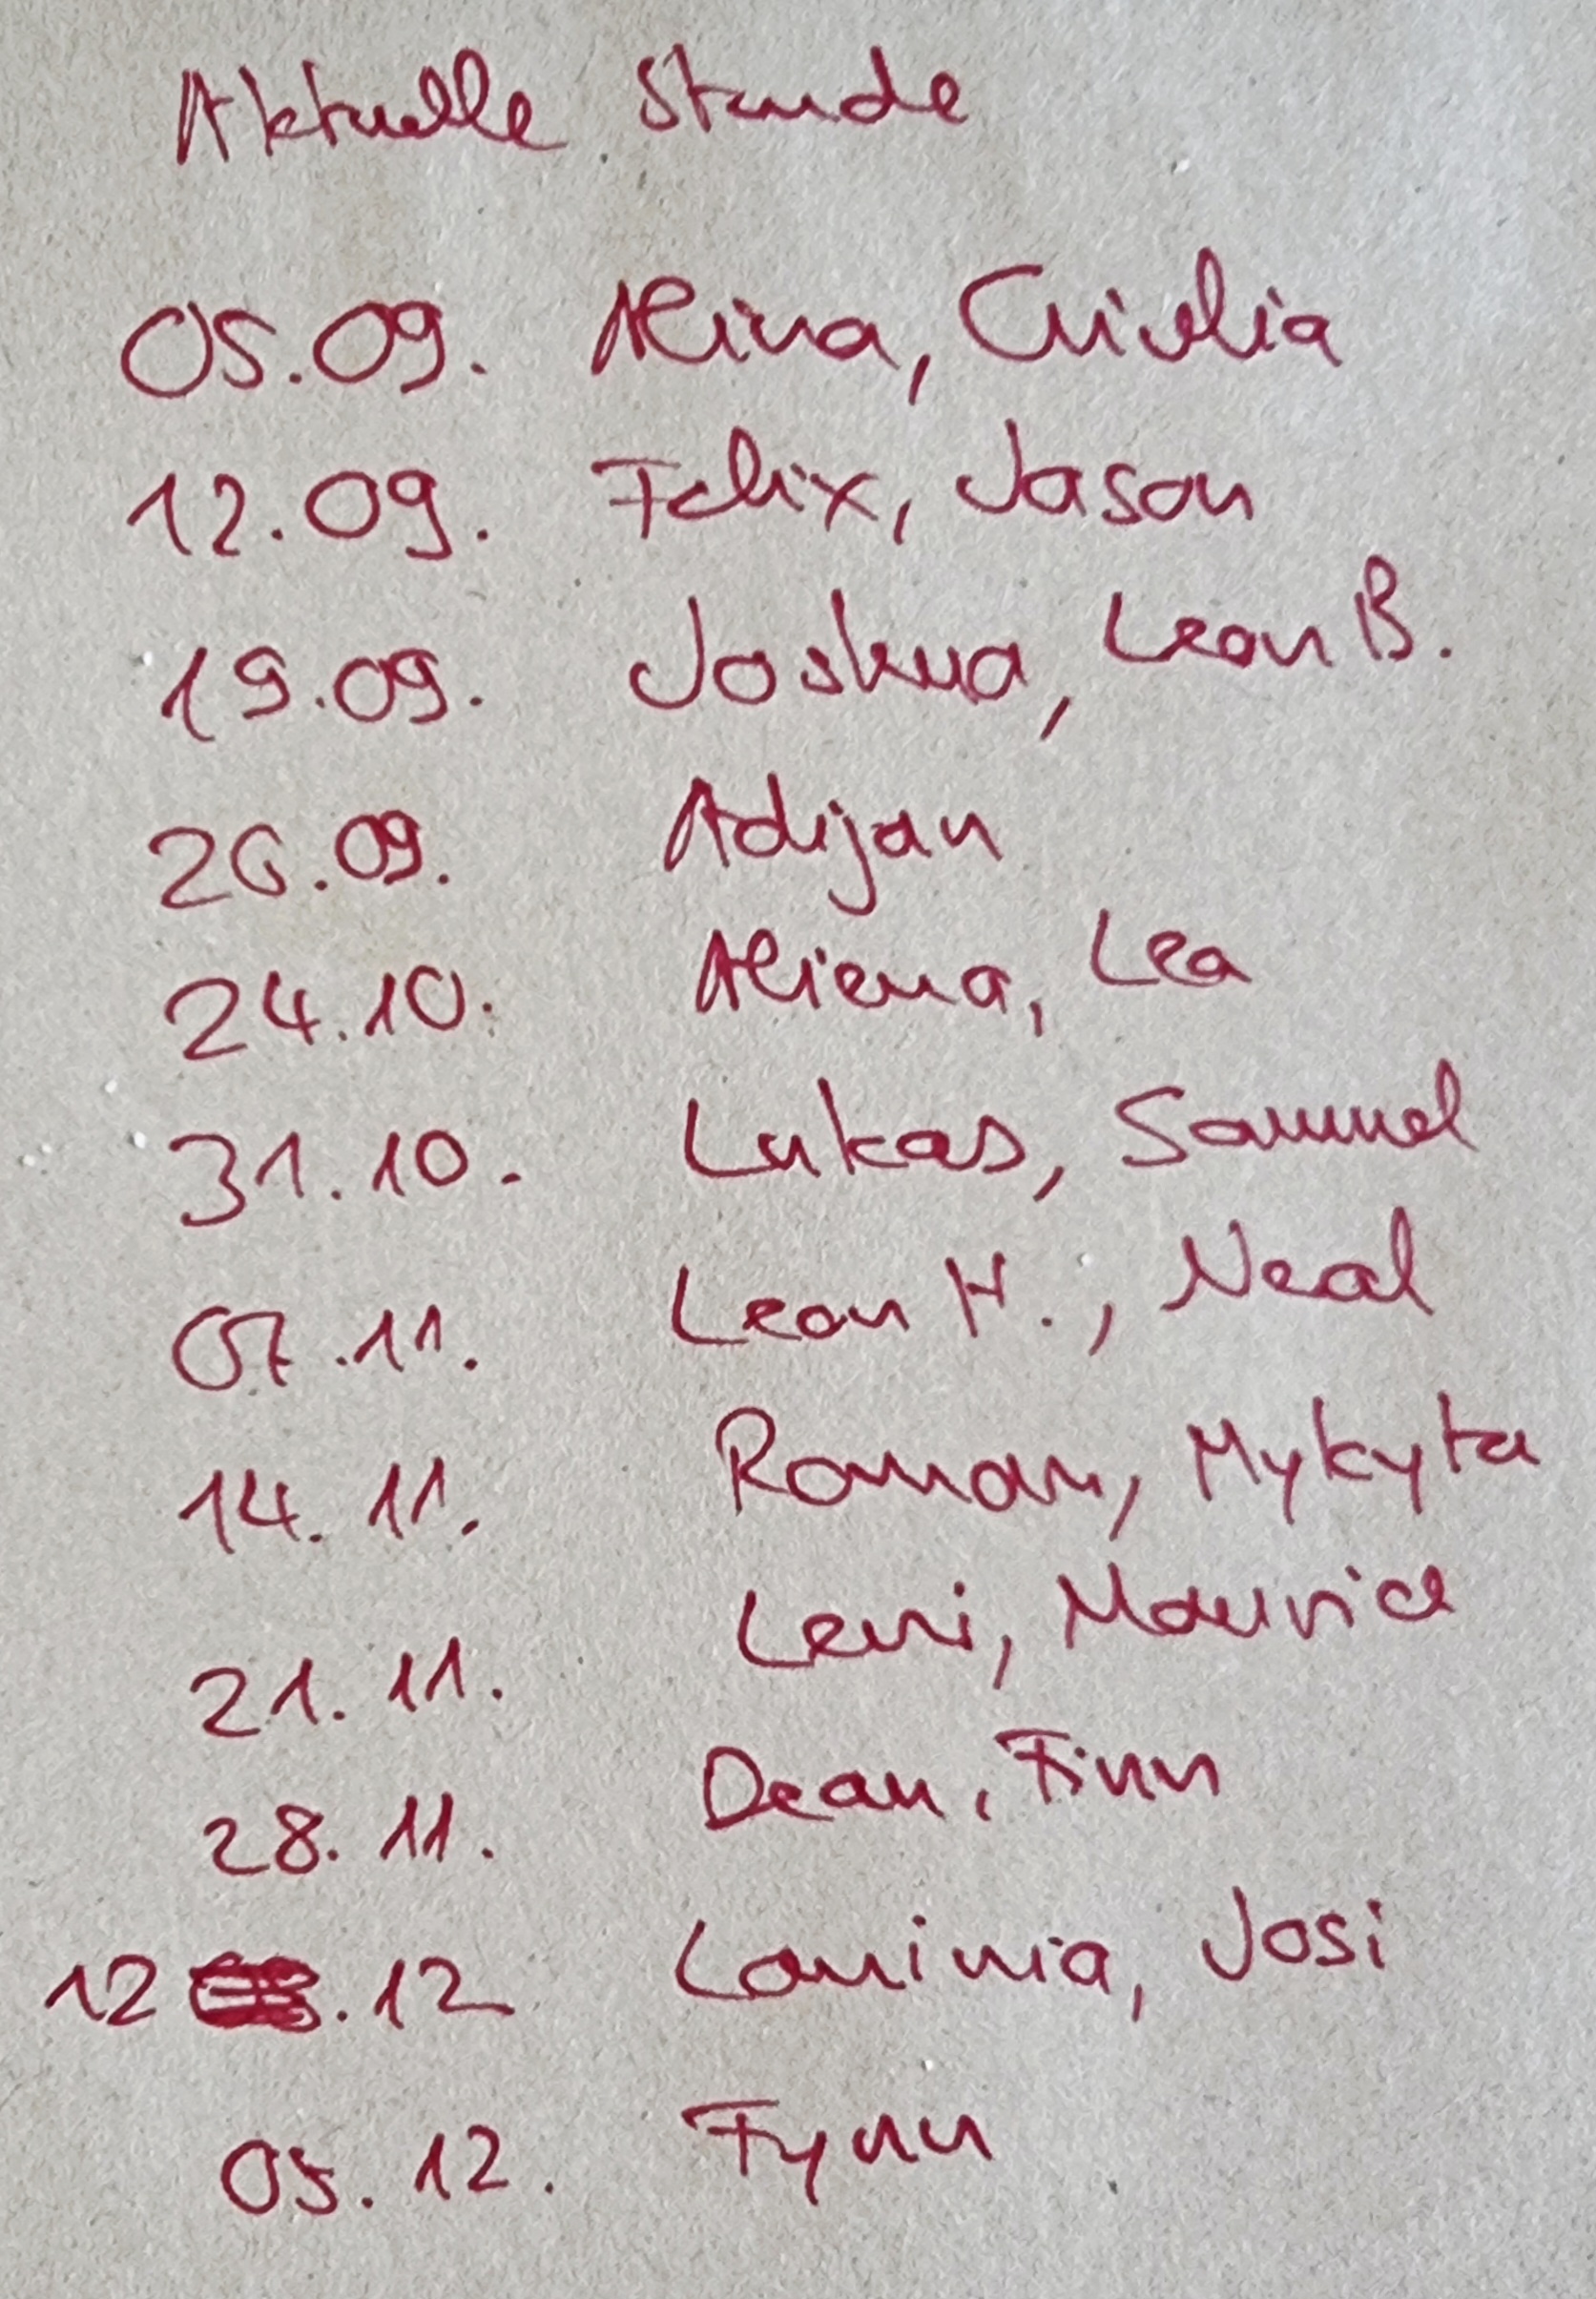 Aktuelle Stunde
05.09. Alina, Giulia
12.09. Felix, Jason
19.09. Joshua, Leon B.
26.09. Adijan
24.10. Aliena, Lea
31.10. Lukas, Samuel
07.11. Leon H., Neal
14.11. Roman, Mykyta
21.11. Leni, Maurice
28.11. Dean, Finn
12.12 Josi
05.12. Fynn